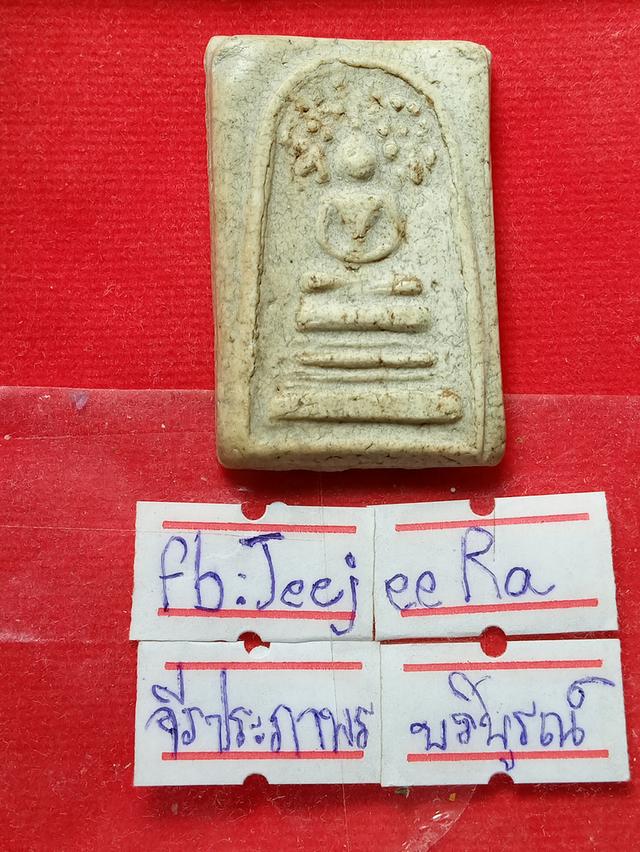 fb:Jeejee Ra
จีรประภาพร บริบูรณ์